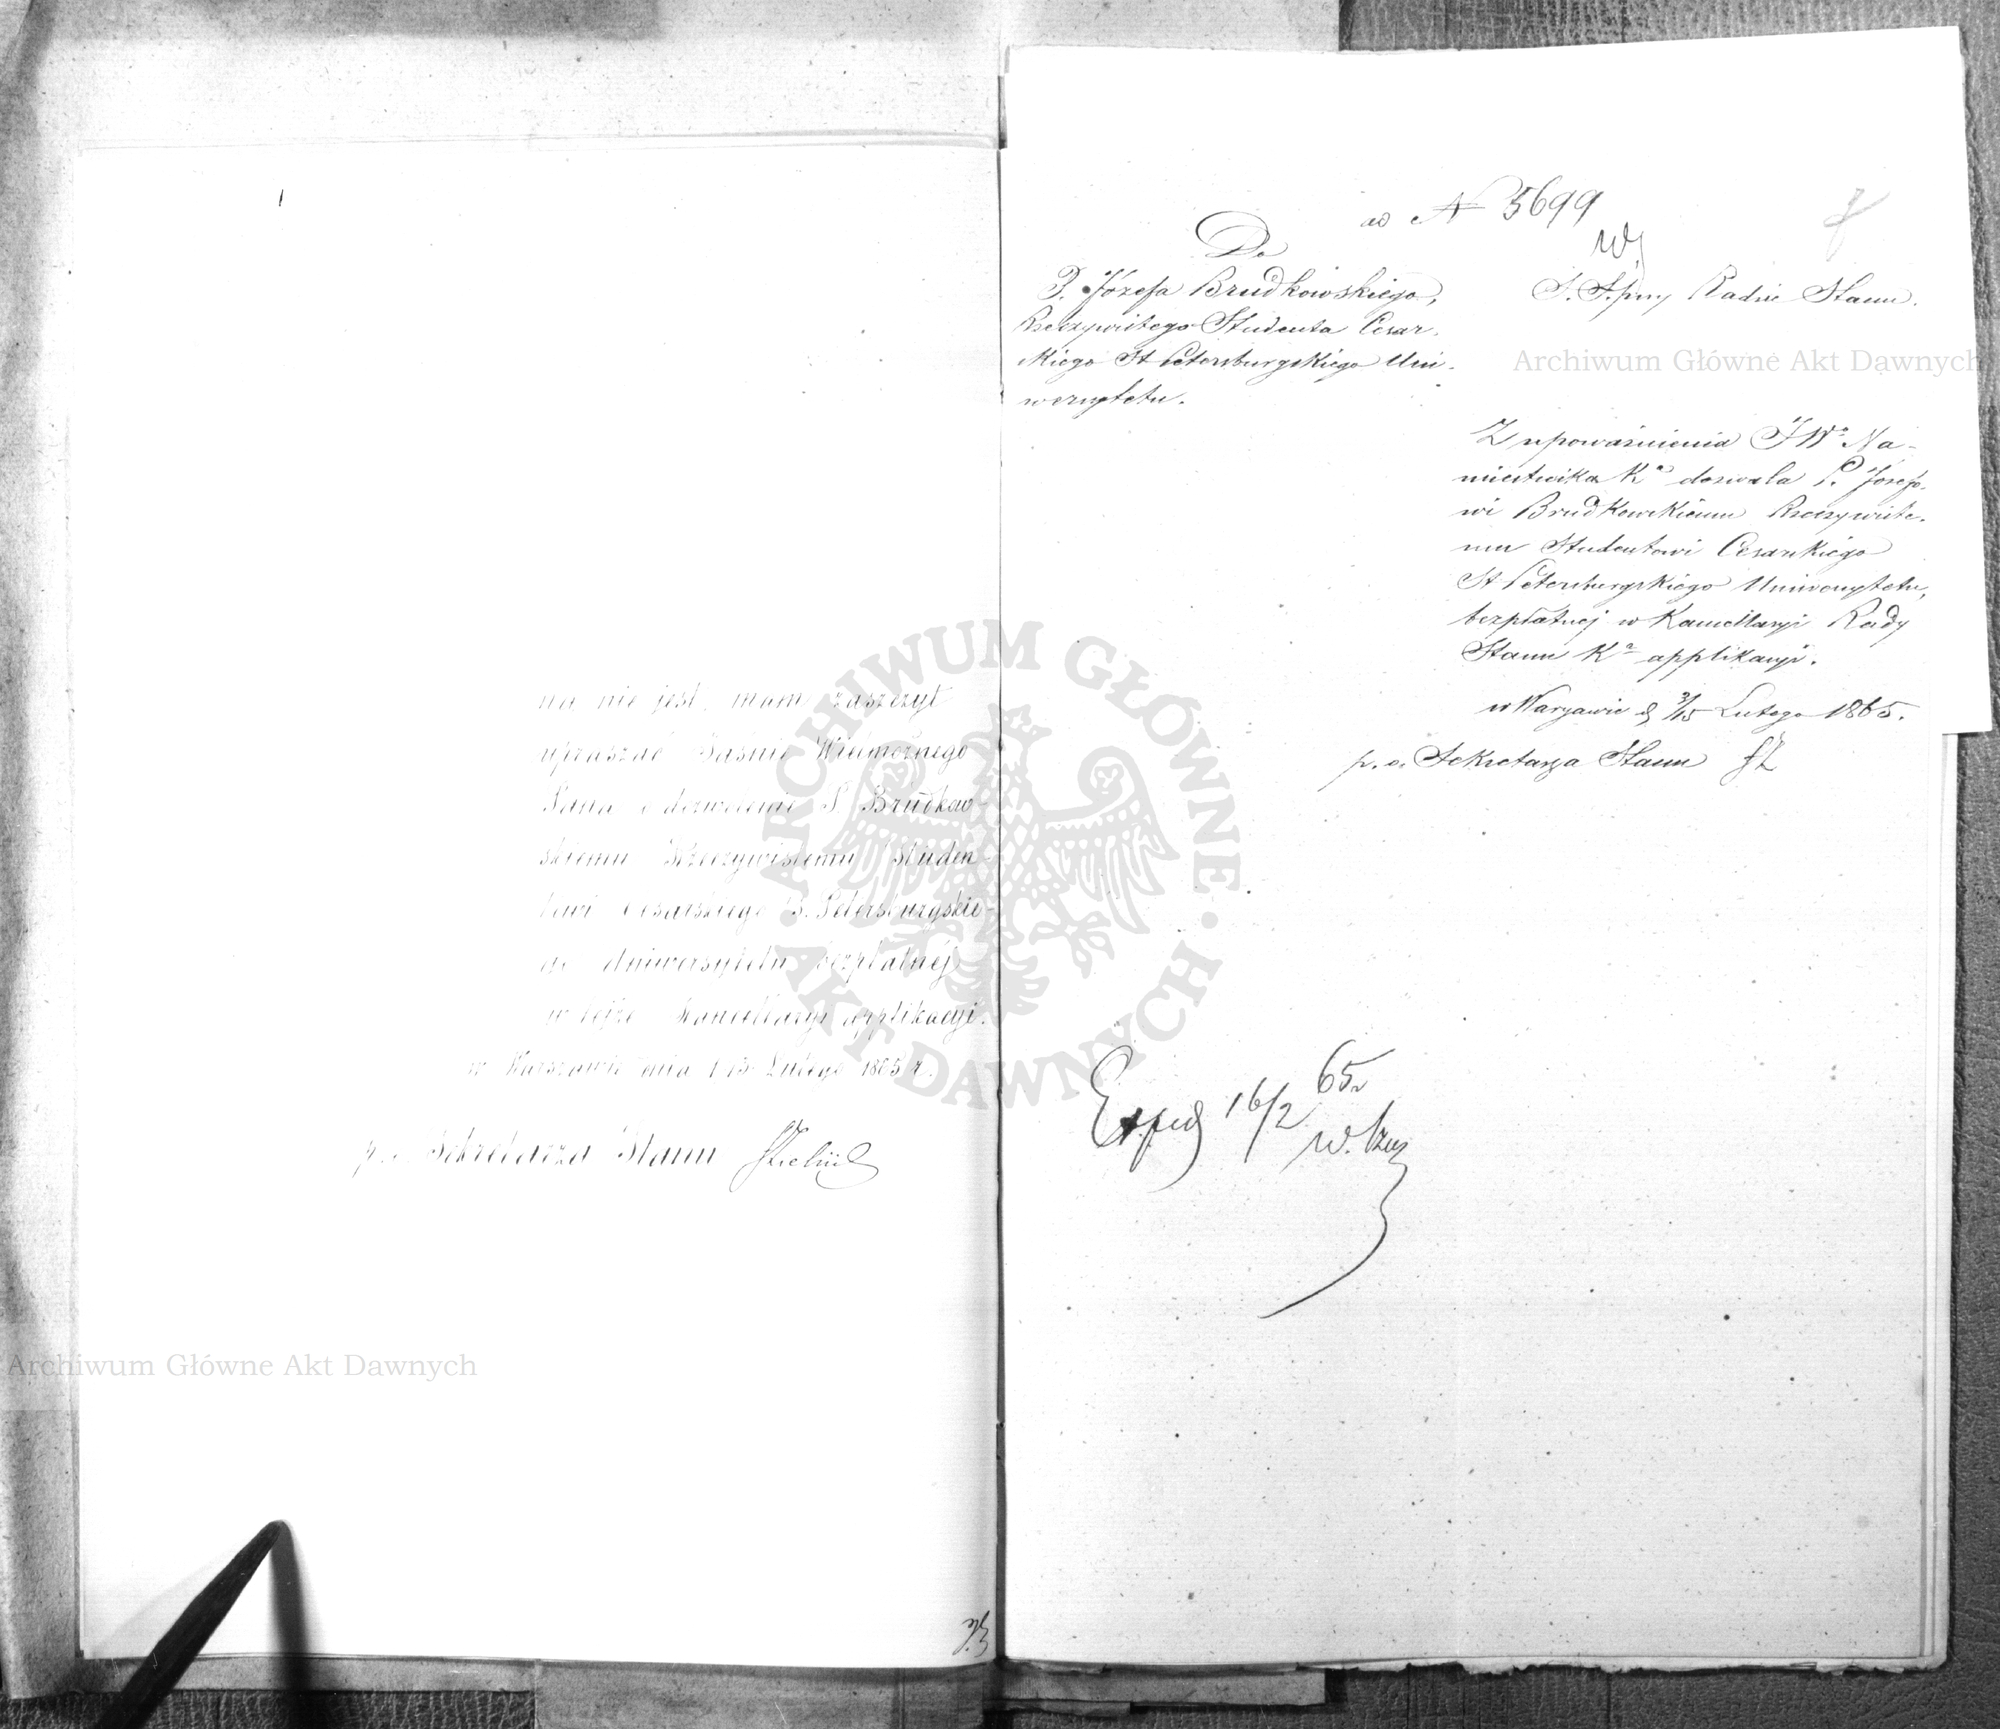 na nie jest, mam zaszczyt
upraszać Jaśnie Wielmożnego
Pana o dozwolenie P. Brudkow-
skiemu Rzeczywistemu Studen-
towi Cesarskiego S. Petersburgskie-
go Uniwersytetu bezpłatnéj
w tejże Kancellaryi applikacyi.
w Warszawie dnia 1/13 Lutego 1865 r.
p. o. Sekretarza Stanu
ad N 5699
Do
P. Józefa Brudkowskiego,
Rzeczywistego Studenta Cesar-
skiego St Petersburgskiego Uni-
wersytetu.
S. S. przy Radzie Stanu.
Z upoważnienia JWo Na-
miestnika Ka dozwala P. Józefo-
wi Brudkowskiemu Rzeczywiste-
mu Studentowi Cesarskiego
St Petersburgskiego Uniwersytetu,
bezpłatnej w Kancellaryi Rady
Stanu Ka applikacyi.
w Warszawie d 3/15 Lutego 1865.
p. o. Sekretarza Stanu
Exped 16/2 65r
Archiwum Główne Akt Dawnych
Archiwum Główne Akt Dawnych
· ARCHIWUM GŁÓWNE · AKT DAWNYCH